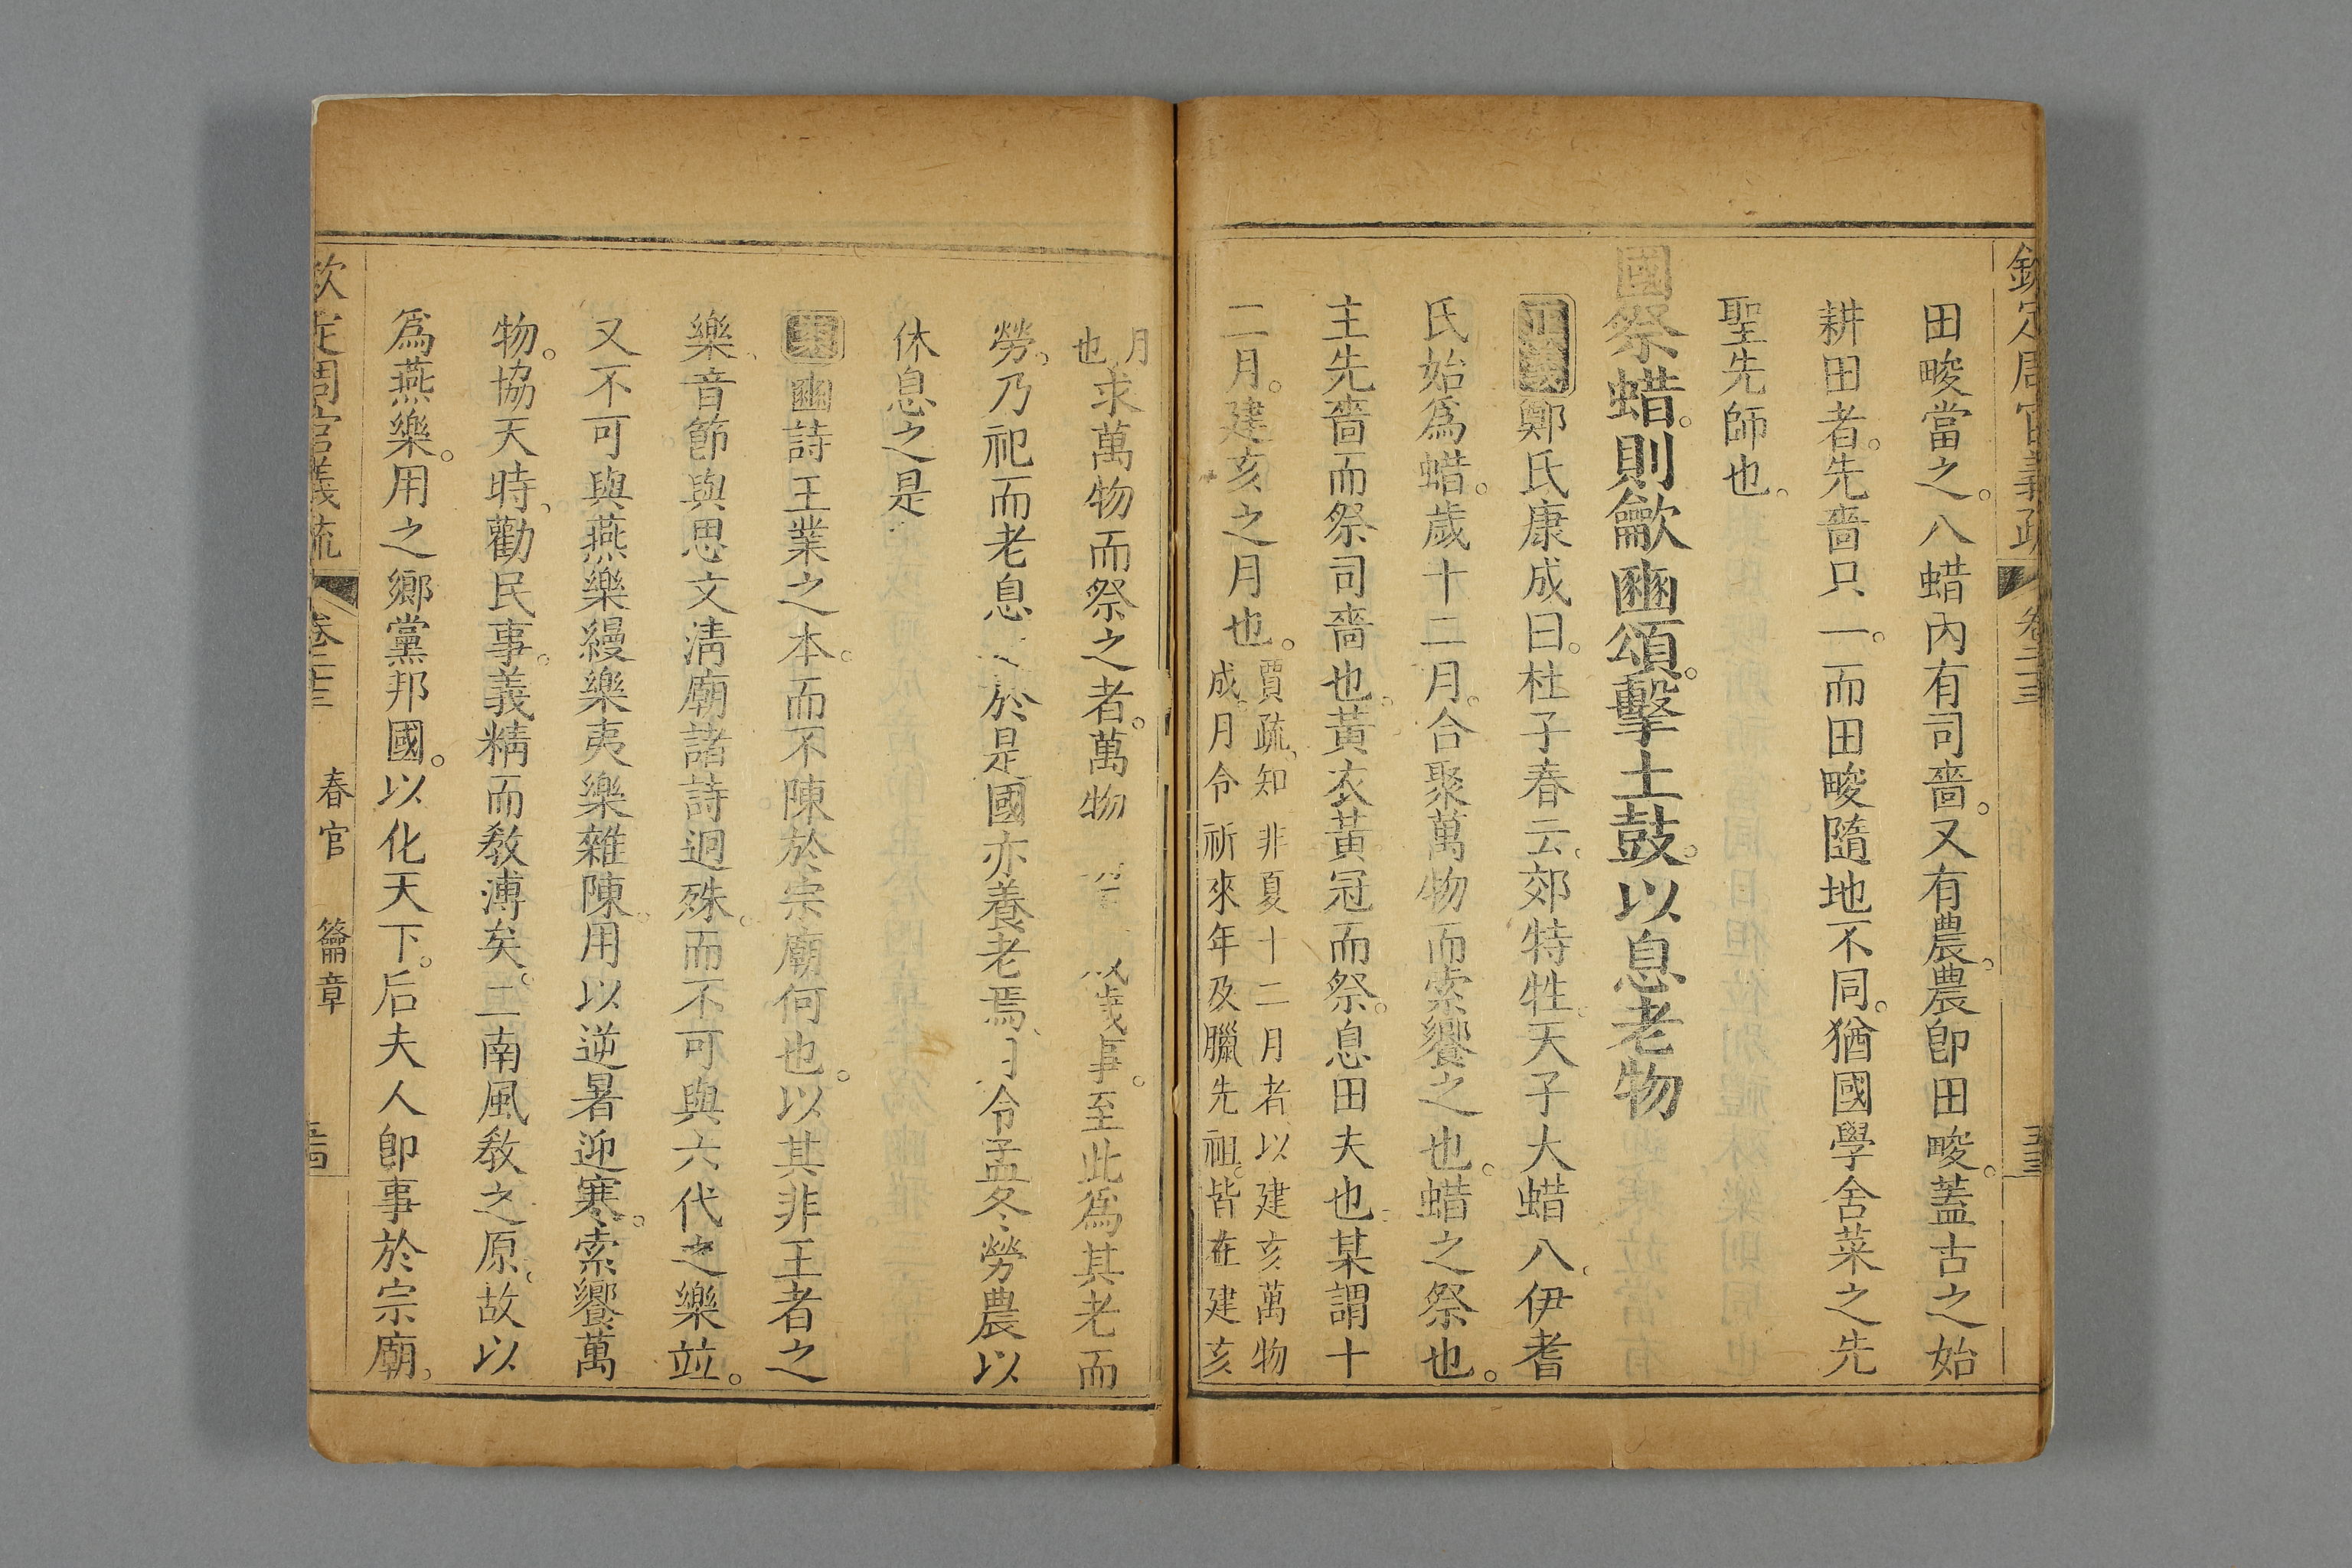 欽定周官義疏 卷二十三 五三
田畯當之。八蜡內有司嗇。又有農。農卽田畯。蓋古之始
耕田者。先嗇只一。而田畯隨地不同。猶國學舍菜之先
聖先師也。
國祭蜡。則龡豳頌。擊土鼓。以息老物
正義鄭氏康成曰。杜子春云。郊特牲。天子大蜡八。伊耆
氏始爲蜡。歲十二月。合聚萬物而索饗之也。蜡之祭也。
主先嗇而祭司嗇也。黃衣黃冠而祭。息田夫也。某謂十
二月。建亥之月也。賈疏。知非夏十二月者以建亥萬物
成。月令祈來年及臘先祖。皆在建亥
月也。求萬物而祭之者。萬物 歲事。至此爲其老而
勞。乃祀而老息 於是國亦養老焉。月令孟冬勞農以
休息之是
案豳詩王業之本。而不陳於宗廟何也。以其非王者之
樂。音節與思文淸廟諸詩迥殊。而不可與六代之樂竝。
又不可與燕樂縵樂夷樂雜陳。用以逆暑迎寒。索饗萬
物。協天時。勸民事。義精而敎溥矣。二南風敎之原。故以
爲燕樂。用之鄕黨邦國。以化天下。后夫人卽事於宗廟。
欽定周官義疏 卷二十三 春官 籥章 五四